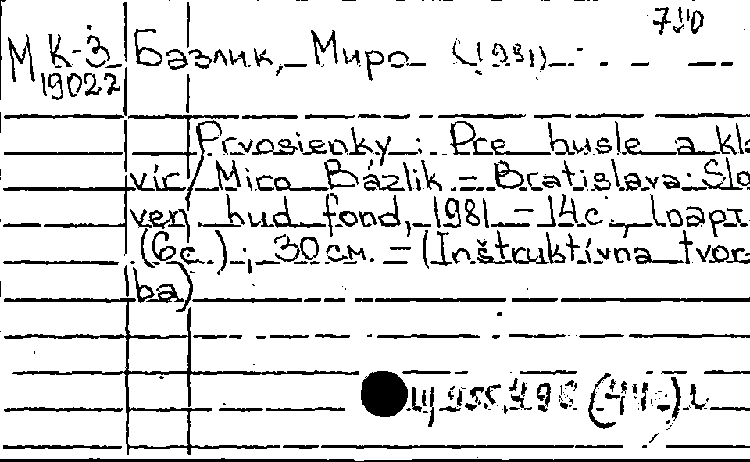 730
М К-3 Базлик, Миро (1931)
19022
Prvosienky : Pre husle a kla
vír / Miro Bázlik. - Bratislava: Slo
ven. hud. fond, 1981. - 14 с., 1 парт.
(6 с.) ; 30 см. - (Inštruktívna tvor
ba)